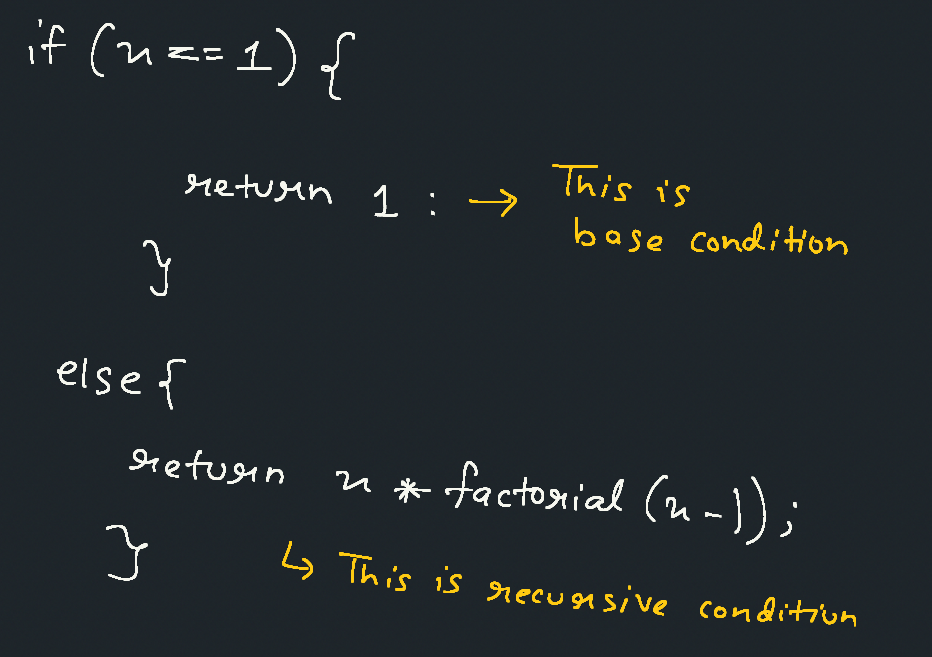 if (n == 1) {
return 1 : → This is
base condition
}
else {
return n * factorial (n-1);
}
↳ This is recursive condition